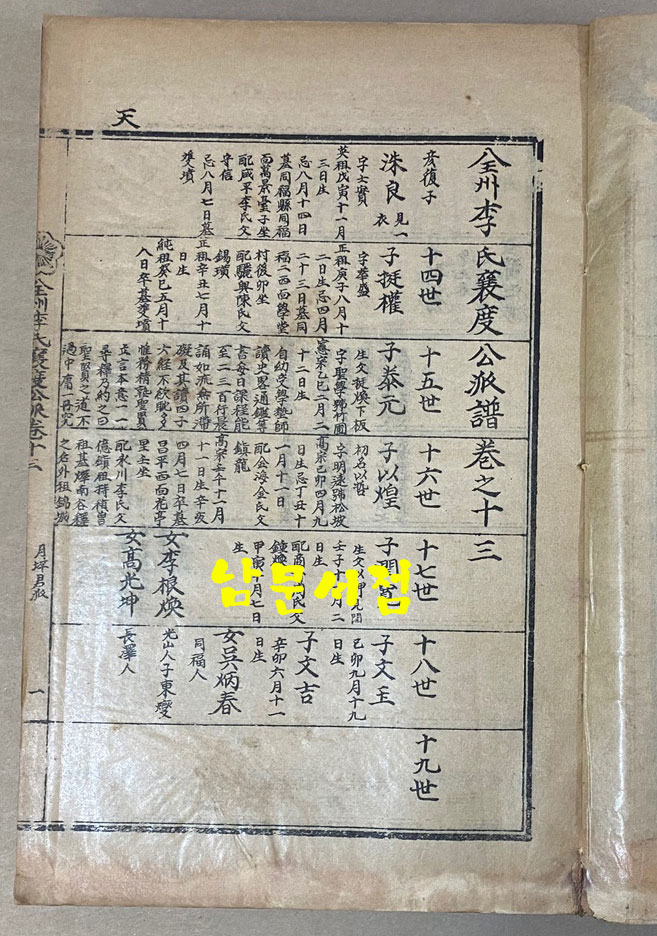 全州李氏襄度公派譜卷之十三
天
彦復子
洙良
見一
衣
字士實
英祖戊寅十一月
三日生
忌八月十四日
墓同福縣同福
面萬景臺子坐
配咸平李氏文
守信
忌八月七日墓
雙墳
十四世
子挺權
字華盛
正祖庚子八月十
二日生忌四月
二十三日墓同
福二西面學堂
村後卯坐
配驪興陳氏文
錫璜
正祖辛丑七月十
日生
純祖癸巳五月十
八日卒墓雙墳
十五世
子泰元
生父挺煥下板
字聖學號竹圃
憲宗乙巳二月二
十二日生
自幼受學塾師
讀史畧通鑑等
書每日課程能
至二三百行晨
誦如流無所滯
礙及其讀四子
六經不欲眺多
惟務精塾聖賢
立言本意一一
尋繹乃約之曰
聖賢之道不
過中庸一再究
十六世
子以煌
初名以哲
字明遠號松坡
高宗己卯四月九
日生忌丁丑十
一月十一日
配金海金氏文
鎮龍
高宗壬午十一月
十一日生辛亥
四月七日卒墓
昌平西面花亭
里壬坐
配永川李氏文
億嶺祖持楨曾
祖基燁南谷繹
之后外祖錦城
十七世
壬子十一月二
日生
生
女李根煥
女高光坤
十八世
子文玉
己卯九月十九
日生
子文吉
辛卯六月十一
日生
女吳炳春
同福人
光山人子東燮
長澤人
十九世
全州李氏襄度公派 卷十三
月坪君派
一
남문서점